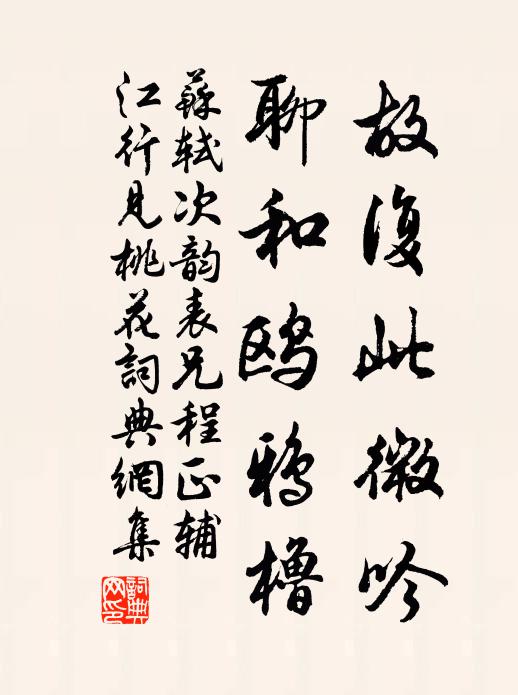 故復此微吟
聊和鸥鴉櫓
蘇軾次韵表兄程正辅
江行見桃花詞典網集
詞典網印